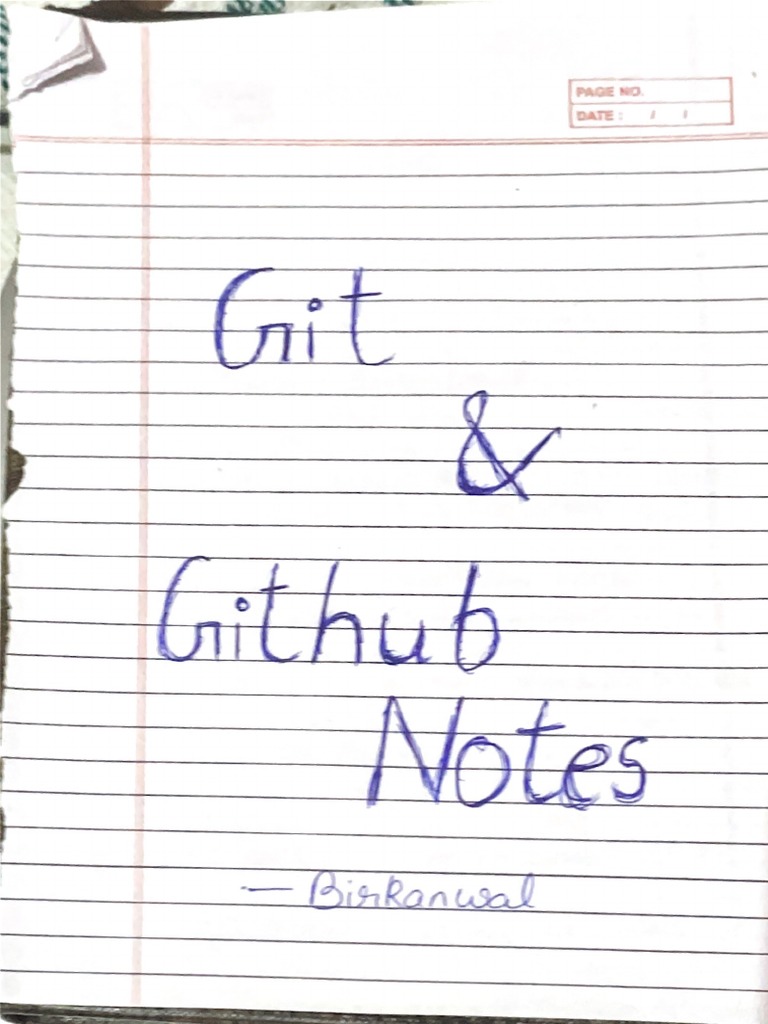 PAGE NO.
DATE : / /
Git
&
Github
Notes
— Birkanwal